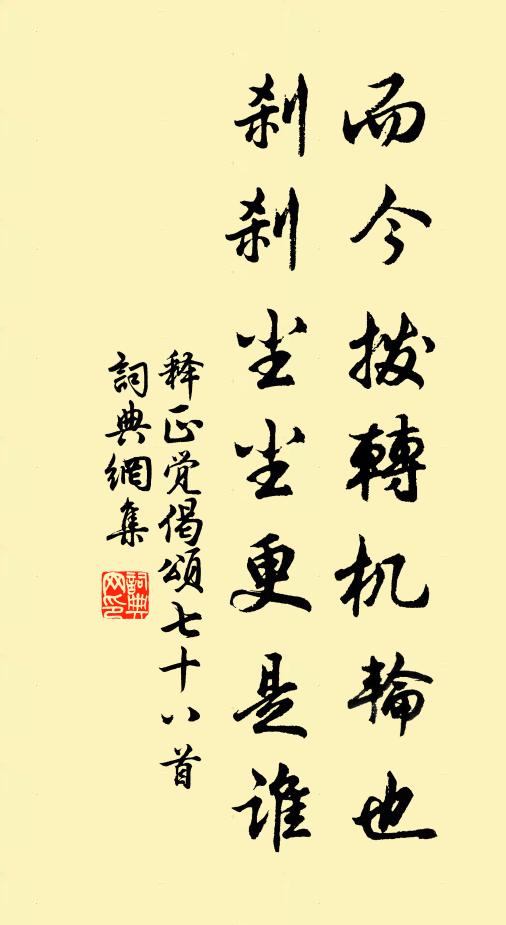 而今拨轉机輪也
刹刹尘尘更是誰
释正觉偈頌七十八首
詞典網集
詞典网印